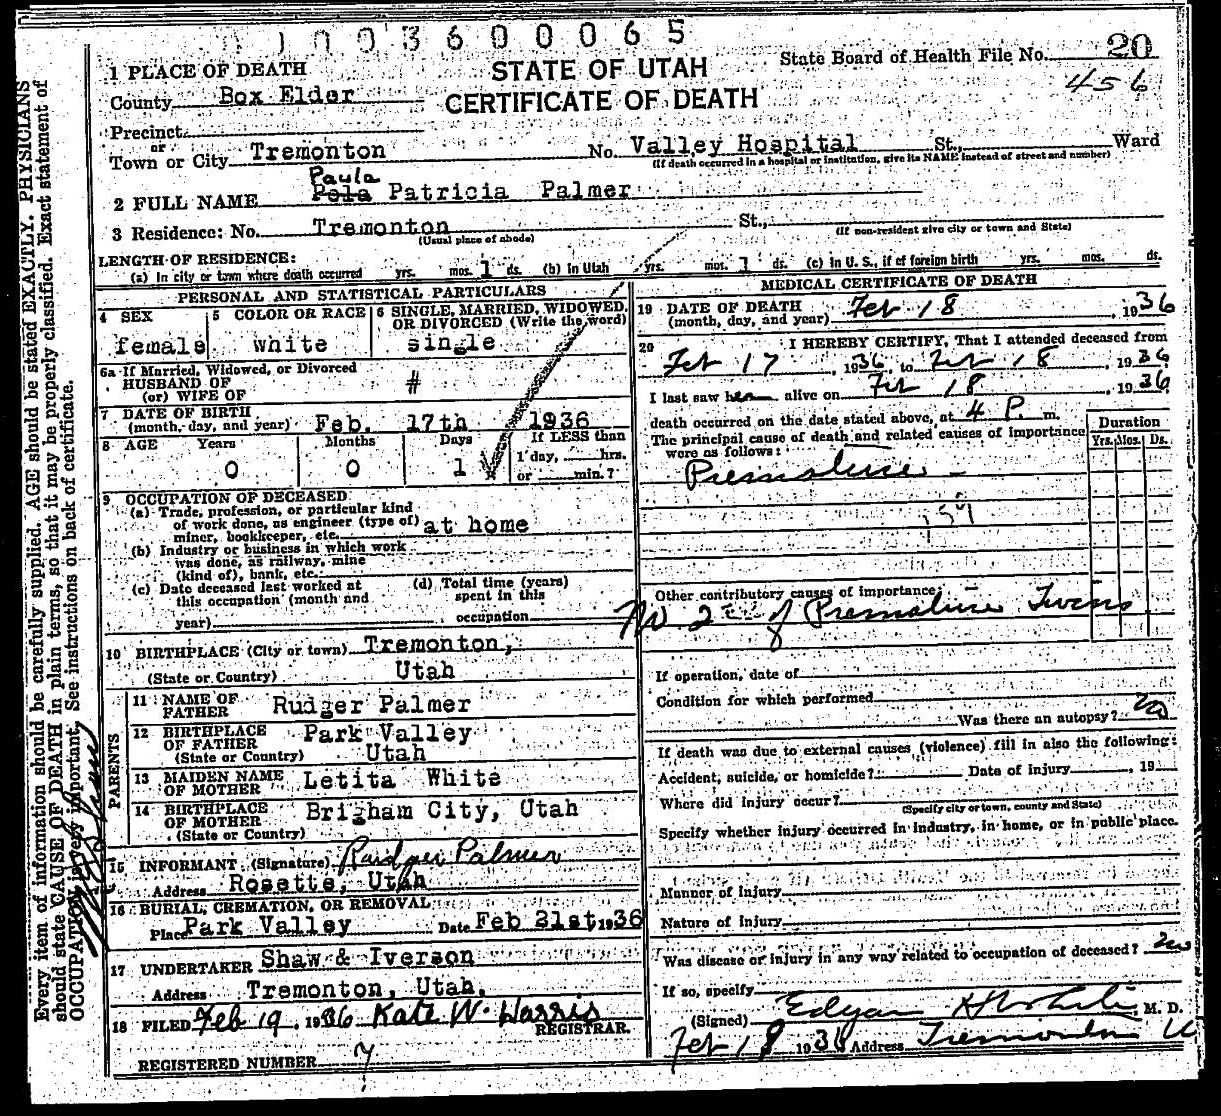 1003600065
State Board of Health File No. 20
456
STATE OF UTAH
CERTIFICATE OF DEATH
1 PLACE OF DEATH
County Box Elder
Precinct
or
Town or City Tremonton No. Valley Hospital St., Ward
(If death occurred in a hospital or institution, give its NAME instead of street and number)
Paula
2 FULL NAME Pola Patricia Palmer
3 Residence: No. Tremonton St.,
(Usual place of abode) (If non-resident give city or town and State)
LENGTH OF RESIDENCE:
(a) In city or town where death occurred yrs. mos. 1 ds. (b) in Utah yrs. mos. 1 ds. (c) in U. S., if of foreign birth yrs. mos. ds.
PERSONAL AND STATISTICAL PARTICULARS
4 SEX
female
5 COLOR OR RACE
white
6 SINGLE, MARRIED, WIDOWED, OR DIVORCED (Write the word)
single
6a If Married, Widowed, or Divorced
HUSBAND OF
(or) WIFE OF #
7 DATE OF BIRTH
(month, day, and year) Feb. 17th 1936
8 AGE Years Months Days If LESS than
0 0 1 1 day, hrs.
or min.?
9 OCCUPATION OF DECEASED
(a) Trade, profession, or particular kind
of work done, as engineer (type of) at home
miner, bookkeeper, etc.
(b) Industry or business in which work
was done, as railway, mine
(kind of), bank, etc.
(c) Date deceased last worked at
this occupation (month and
year)
(d) Total time (years)
spent in this
occupation
10 BIRTHPLACE (City or town) Tremonton,
(State or Country) Utah
PARENTS
11 NAME OF
FATHER Rudger Palmer
12 BIRTHPLACE Park Valley
OF FATHER
(State or Country) Utah
13 MAIDEN NAME
OF MOTHER Letita White
14 BIRTHPLACE
OF MOTHER Brigham City, Utah
(State or Country)
15 INFORMANT (Signature) Rudger Palmer
Address Rosette, Utah
16 BURIAL, CREMATION, OR REMOVAL
Place Park Valley Date Feb 21st 1936
17 UNDERTAKER Shaw & Iverson
Address Tremonton, Utah.
18 FILED Feb 19, 1936 Kate W. Harris
REGISTRAR.
REGISTERED NUMBER 7
MEDICAL CERTIFICATE OF DEATH
19 DATE OF DEATH
(month, day, and year) Feb 18, 1936
20 I HEREBY CERTIFY, That I attended deceased from
Feb 17, 1936, to Feb 18, 1936
I last saw her alive on Feb 18, 1936
death occurred on the date stated above, at 4 P. m.
The principal cause of death and related causes of importance
were as follows:
Duration
Yrs. Mos. Ds.
Premature
159
Other contributory causes of importance:
No. 2 of Premature Twins
If operation, date of
Condition for which performed
Was there an autopsy? no
If death was due to external causes (violence) fill in also the following:
Accident, suicide, or homicide? Date of injury, 19
Where did injury occur?
(Specify city or town, county and State)
Specify whether injury occurred in industry, in home, or in public place.
Manner of injury
Nature of injury
Was disease or injury in any way related to occupation of deceased? no
If so, specify
(Signed) Edgar M. D.
Feb 18 1936 Address Tremonton U
Every item of information should be carefully supplied. AGE should be stated EXACTLY. PHYSICIANS
should state CAUSE OF DEATH in plain terms, so that it may be properly classified. Exact statement of
OCCUPATION is very important. See instructions on back of certificate.